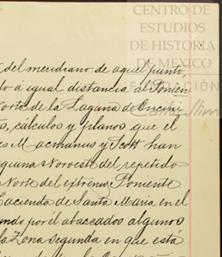 CENTRO DE
ESTUDIOS
DE HISTORIA
DE MÉXICO
del meridiano de aquel punto,
do á igual distancia al Ponien
Norte de la Laguna de Encini
os, cálculos y planos que el
es Macmanus y Scott han
aguna y Noroeste del repetido
Norte del extremo Poniente
Hacienda de Santa María en el
undo por él abarcados algunos
la Zona Segunda en que está